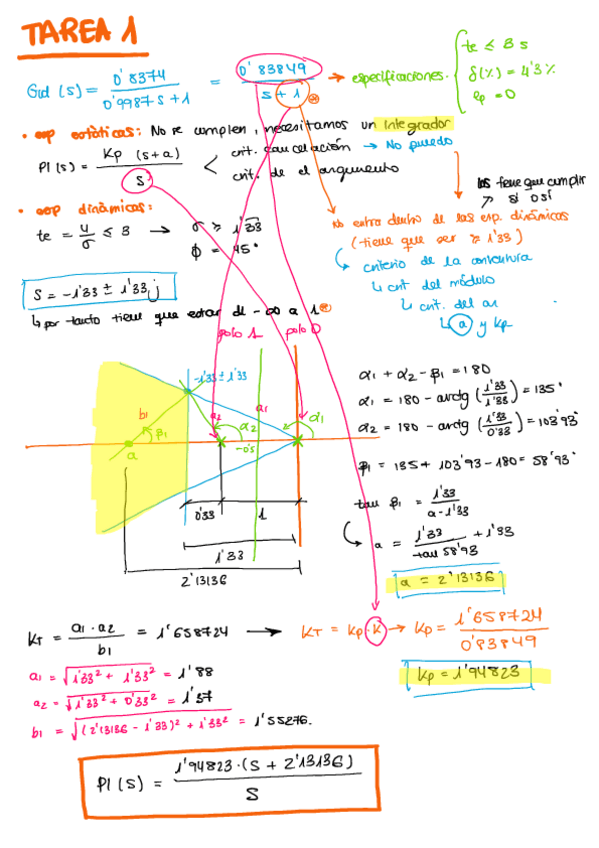 TAREA 1
Gd (s) = 0'8374 / 0'9987·s+1 = 0'83849 / s+1 → especificaciones. { te ≤ 3 s
δ(%) = 4'3%
ep = 0
• esp estáticas: No se cumplen, necesitamos un integrador
PI(s) = Kp (s+a) / s < crit. cancelación → No puedo
crit. de el argumento
los tiene que cumplir
sí o sí
• esp dinámicas:
te = 4/σ ≤ 3 → σ ≥ 1'33
ϕ = 45°
No entra dentro de las esp. dinámicas
(tiene que ser ≥ 1'33)
criterio de la
↳ crit del módulo
↳ crit. del
↳ a y Kp
S = -1'33 ± 1'33 j
↳ por tanto tiene que estar de -∞ a 1
polo 1 polo 0
-1'33 ± 1'33
b1 β1 a
a2 α2 a1 α1
-0'5
0'33 1
1'33
2'13136
α1 + α2 - β1 = 180
α1 = 180 - arctg (1'33/1'33) = 135°
α2 = 180 - arctg (1'33/0'33) = 103'93°
β1 = 135 + 103'93 - 180 = 58'93°
tan β1 = 1'33 / a-1'33
a = 1'33 / tan 58'93 + 1'33
a = 2'13136
KT = a1·a2 / b1 = 1'658724 → KT = Kp·K → Kp = 1'658724 / 0'83849
a1 = √1'33² + 1'33² = 1'88
Kp = 1'94823
a2 = √1'33² + 0'33² = 1'37
b1 = √(2'13136 - 1'33)² + 1'33² = 1'55276.
PI(s) = 1'94823·(s + 2'13136) / s